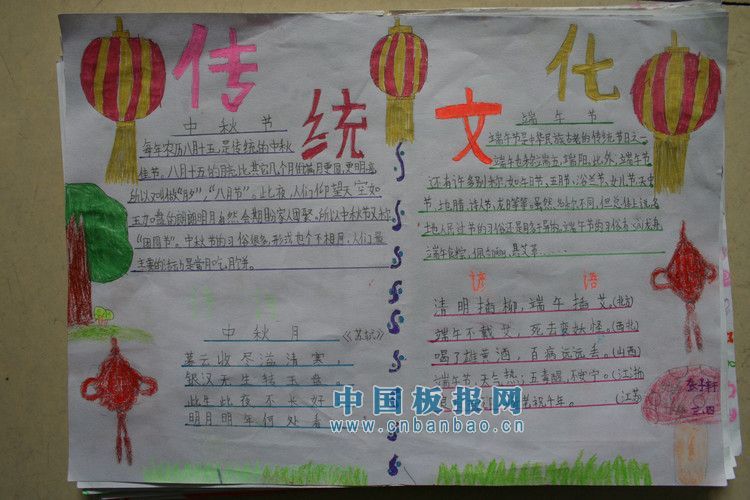 传统文化
中秋节
每年农历八月十五,是传统的中秋
佳节。八月十五的月亮比其它几个月份满月更圆,更明亮,
所以又叫做“月夕”,“八月节”。此夜,人们仰望天空如
玉如盘的朗朗明月自然会期盼家人团聚。所以中秋节又称
“团圆节”。中秋节的习俗很多,形式也个不相同,人们最
主要的活动是赏月吃月饼。
中秋月
《苏轼》
暮云收尽溢清寒,
银汉无声转玉盘。
此生此夜不长好
明月明年何处看
端午节
端午节是中华民族古老的传统节日之一。
端午也称端五,端阳。此外,端午节
还有许多别称,如:午日节、五月节、浴兰节、女儿节、天中
节、地腊、诗人节、龙日等等。虽然名称不同,但总体上说,各
地人民过节的习俗还是同多于异的。端午节的习俗有:
端午食粽、佩香囊、悬艾草……
谚语
清明插柳,端午插艾。
端午不戴艾,死去变妖怪。(西北)
喝了雄黄酒,百病远远丢。(山西)
端午节,天气热;五毒醒,不安宁。(江浙
年。(江苏
中国板报网
www.cnbanbao.cn